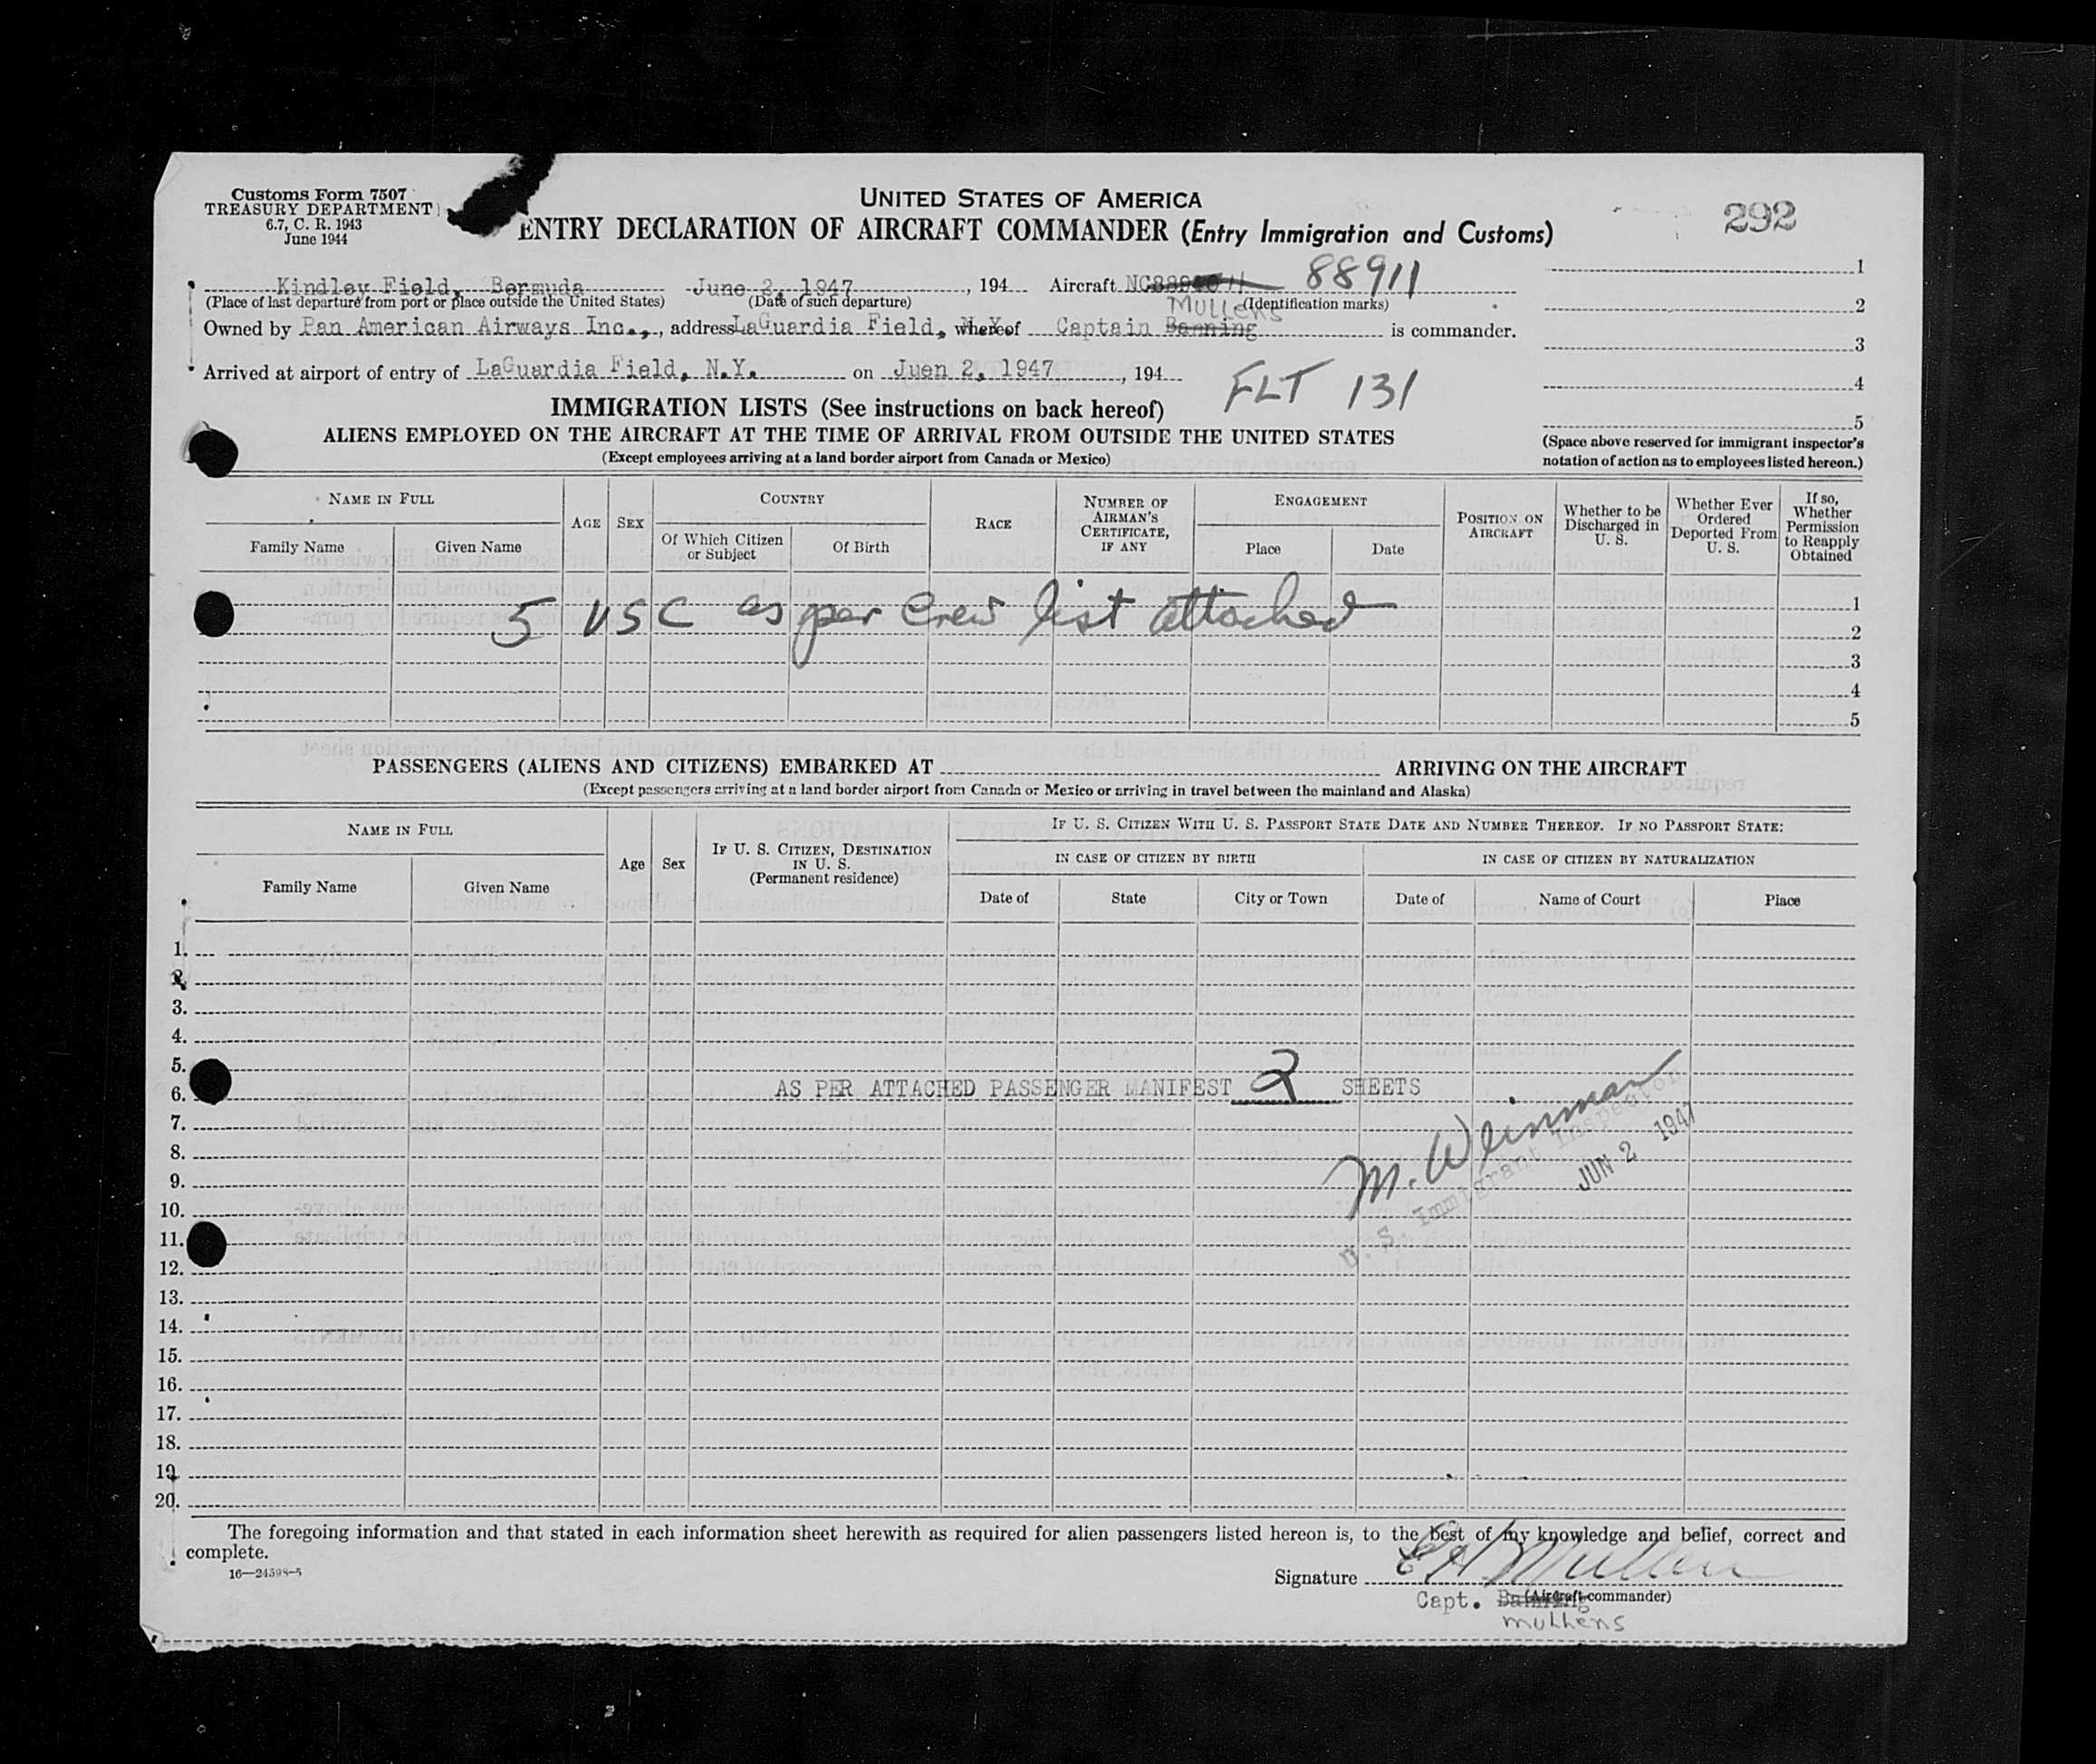 Customs Form 7507
TREASURY DEPARTMENT
6.7, C. R. 1943
June 1944
UNITED STATES OF AMERICA
ENTRY DECLARATION OF AIRCRAFT COMMANDER (Entry Immigration and Customs)
292
Kindley Field, Bermuda June 2, 1947, 194 Aircraft NC 88911
(Place of last departure from port or place outside the United States) (Date of such departure) (Identification marks)
MULLENS
Owned by Pan American Airways Inc., , address LaGuardia Field, N.Y. whereof Captain Banning is commander.
Arrived at airport of entry of LaGuardia Field, N.Y. on Juen 2, 1947, 194
FLT 131
1
2
3
4
5
(Space above reserved for immigrant inspector's
notation of action as to employees listed hereon.)
IMMIGRATION LISTS (See instructions on back hereof)
ALIENS EMPLOYED ON THE AIRCRAFT AT THE TIME OF ARRIVAL FROM OUTSIDE THE UNITED STATES
(Except employees arriving at a land border airport from Canada or Mexico)
NAME IN FULL
Family Name
Given Name
AGE
SEX
COUNTRY
Of Which Citizen
or Subject
Of Birth
RACE
NUMBER OF
AIRMAN'S
CERTIFICATE,
IF ANY
ENGAGEMENT
Place
Date
POSITION ON
AIRCRAFT
Whether to be
Discharged in
U. S.
Whether Ever
Ordered
Deported From
U. S.
If so,
Whether
Permission
to Reapply
Obtained
5 USC as per Crew list attached
1
2
3
4
5
PASSENGERS (ALIENS AND CITIZENS) EMBARKED AT ARRIVING ON THE AIRCRAFT
(Except passengers arriving at a land border airport from Canada or Mexico or arriving in travel between the mainland and Alaska)
NAME IN FULL
Family Name
Given Name
Age
Sex
IF U. S. CITIZEN, DESTINATION
IN U. S.
(Permanent residence)
IF U. S. CITIZEN WITH U. S. PASSPORT STATE DATE AND NUMBER THEREOF. IF NO PASSPORT STATE:
IN CASE OF CITIZEN BY BIRTH
Date of
State
City or Town
IN CASE OF CITIZEN BY NATURALIZATION
Date of
Name of Court
Place
1.
2.
3.
4.
5.
6.
AS PER ATTACHED PASSENGER MANIFEST 2 SHEETS
7.
8.
9.
10.
11.
12.
13.
14.
15.
16.
17.
18.
19.
20.
M. Weinman
U. S. Immigrant Inspector
JUN 2 1947
The foregoing information and that stated in each information sheet herewith as required for alien passengers listed hereon is, to the best of my knowledge and belief, correct and
complete.
16—24598-5
Signature
(Aircraft commander)
Capt.
Mullens